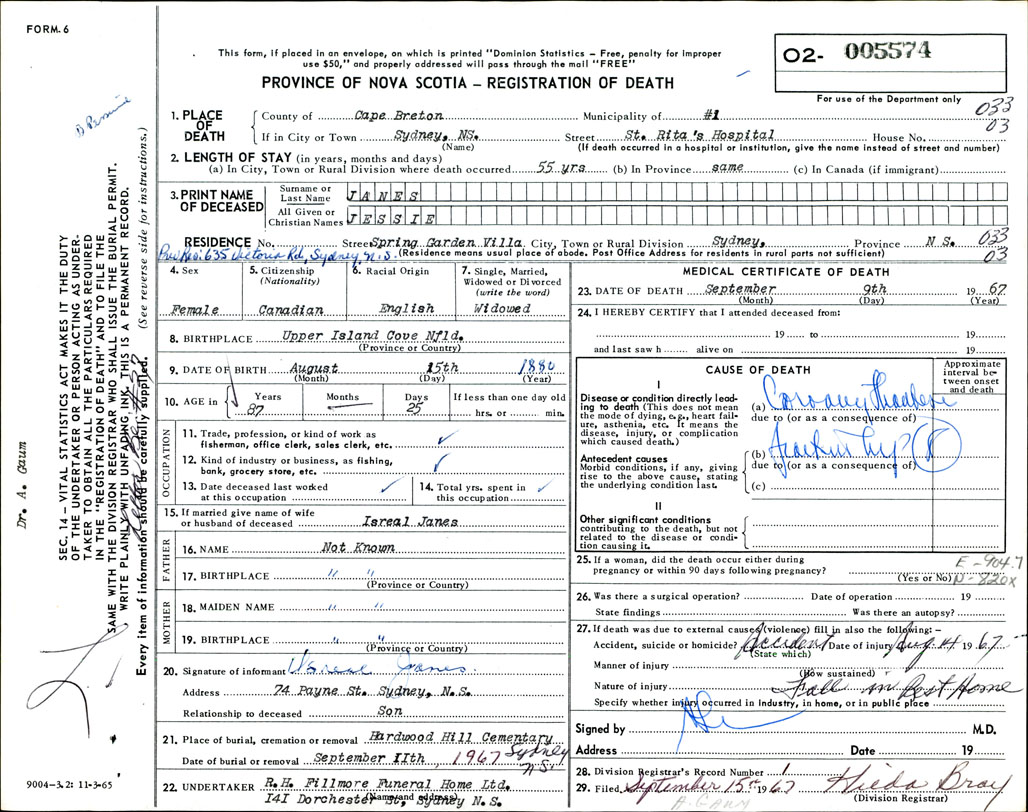 FORM. 6
This form, if placed in an envelope, on which is printed "Dominion Statistics – Free, penalty for improper
use $50," and properly addressed will pass through the mail "FREE"
PROVINCE OF NOVA SCOTIA – REGISTRATION OF DEATH
O2- 005574
For use of the Department only
033
03
1. PLACE OF DEATH
County of Cape Breton Municipality of #1
If in City or Town Sydney, NS. Street St. Rita's Hospital House No.
(Name) (If death occurred in a hospital or institution, give the name instead of street and number)
2. LENGTH OF STAY (in years, months and days)
(a) In City, Town or Rural Division where death occurred 55 yrs (b) In Province same (c) In Canada (if immigrant)
3. PRINT NAME OF DECEASED
Surname or Last Name JANES
All Given or Christian Names JESSIE
RESIDENCE No. Street Spring Garden Villa City, Town or Rural Division Sydney, Province N S. 033
03
Prev Res: 635 Victoria Rd, Sydney, N.S. (Residence means usual place of abode. Post Office Address for residents in rural parts not sufficient)
4. Sex
Female
5. Citizenship
(Nationality)
Canadian
6. Racial Origin
English
7. Single, Married,
Widowed or Divorced
(write the word)
Widowed
8. BIRTHPLACE Upper Island Cove Nfld.
(Province or Country)
9. DATE OF BIRTH August 15th 1880
(Month) (Day) (Year)
10. AGE in
Years
87
Months
Days
25
If less than one day old
hrs. or min.
OCCUPATION
11. Trade, profession or kind of work as
fisherman, office clerk, sales clerk, etc.
12. Kind of industry or business, as fishing,
bank, grocery store, etc.
13. Date deceased last worked
at this occupation
14. Total yrs. spent in
this occupation
15. If married give name of wife
or husband of deceased Isreal Janes
FATHER
16. NAME Not Known
17. BIRTHPLACE " "
(Province or Country)
MOTHER
18. MAIDEN NAME " "
19. BIRTHPLACE " "
(Province or Country)
20. Signature of informant Janes.
Address 74 Payne St. Sydney, N.S.
Relationship to deceased Son
21. Place of burial, cremation or removal Hardwood Hill Cementary
Sydney N.S.
Date of burial or removal September 11th, 1967
22. UNDERTAKER R.H. Fillmore Funeral Home Ltd.
(Name and address)
141 Dorchester St, Sydney N.S.
MEDICAL CERTIFICATE OF DEATH
23. DATE OF DEATH September 9th 1967
(Month) (Day) (Year)
24. I HEREBY CERTIFY that I attended deceased from:
19 to 19
and last saw h alive on 19
CAUSE OF DEATH
Approximate
interval be-
tween onset
and death
I
Disease or condition directly lead-
ing to death (This does not mean
the mode of dying, e.g., heart fail-
ure, asthenia, etc. It means the
disease, injury, or complication
which caused death.)
(a) Coronary
due to (or as a consequence of)
Antecedent causes
Morbid conditions, if any, giving
rise to the above cause, stating
the underlying condition last.
(b) Fracture Hip (R)
due to (or as a consequence of)
(c)
II
Other significant conditions
contributing to the death, but not
related to the disease or condi-
tion causing it.
25. If a woman, did the death occur either during
pregnancy or within 90 days following pregnancy?
(Yes or No)
E-904.7
N-820X
26. Was there a surgical operation? Date of operation 19
State findings Was there an autopsy?
27. If death was due to external causes (violence) fill in also the following: –
Accident, suicide or homicide? Accident Date of injury Aug. 14 1967
(State which)
Manner of injury
(How sustained)
Nature of injury Fall in Rest Home
Specify whether injury occurred in Industry, in home, or in public place
Signed by M.D.
Address Date 19
28. Division Registrar's Record Number 1
29. Filed September 15th 1967 Hilda Bray
(Division Registrar)
A. GAUM
SEC. 14 – VITAL STATISTICS ACT MAKES IT THE DUTY
OF THE UNDERTAKER OR PERSON ACTING AS UNDER-
TAKER TO OBTAIN ALL THE PARTICULARS REQUIRED
IN THE "REGISTRATION OF DEATH" AND TO FILE THE
SAME WITH THE DIVISION REGISTRAR WHO SHALL ISSUE THE BURIAL PERMIT.
WRITE PLAINLY WITH UNFADING INK. THIS IS A PERMANENT RECORD.
Every item of information should be carefully supplied. (See reverse side for instructions.)
Dr. A. Gaum
9004-3.2: 11-3-65